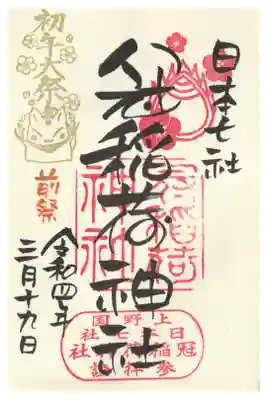 日本七社
冠稲荷神社
初午大祭
前祭
令和四年
三月十九日
上野国
日本七社
冠稲荷神社
参拝証